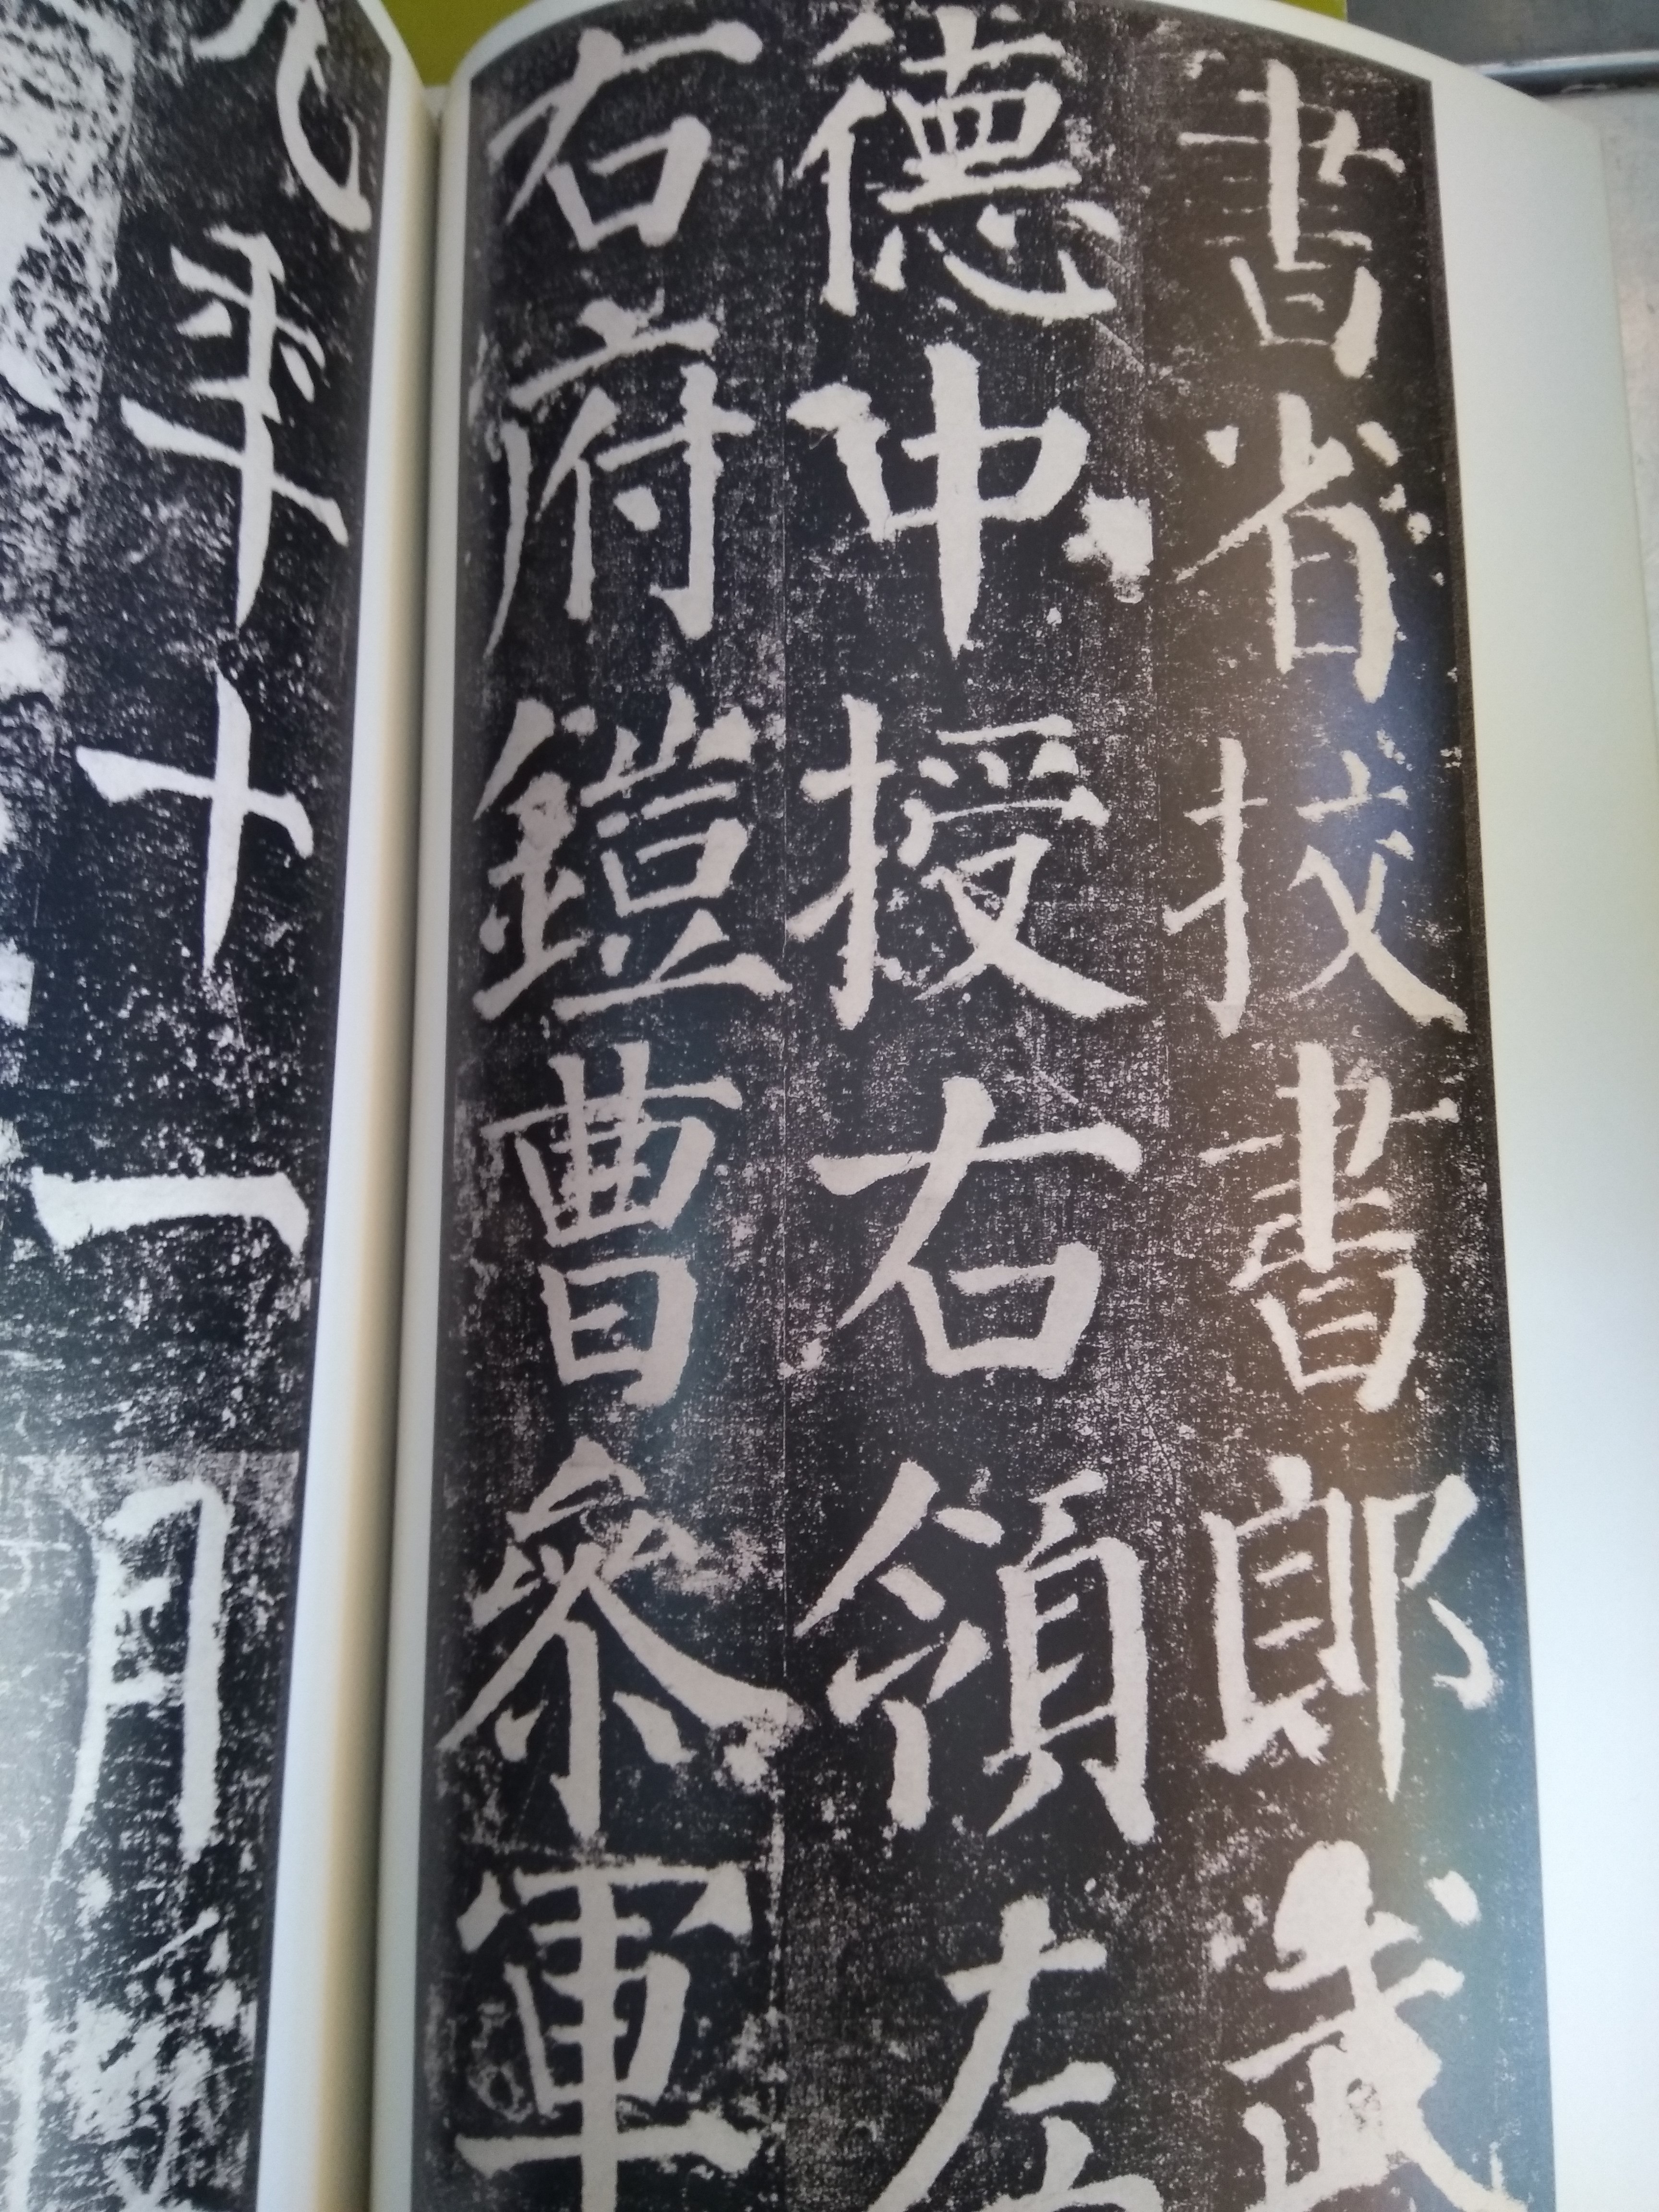 書省挍書郎武
德中授右領左
右府鎧曹參軍
九年十一月